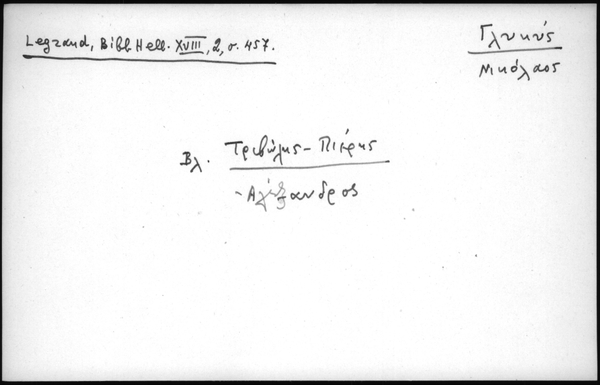 Legrand, Bibl. Hell. XVIII, 2, σ. 457.
Γλυκύς
Νικόλαος
Βλ. Τριβώλης - Πιέρης
- Αλέξανδρος